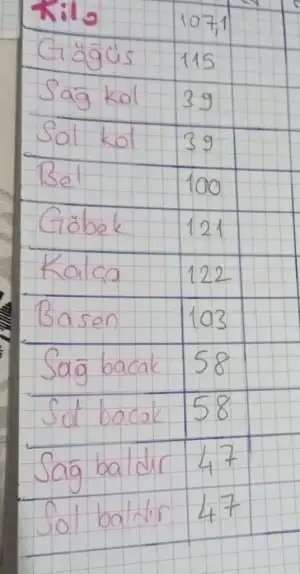 Kilo 107,1
Göğüs 115
Sağ kol 39
Sol kol 39
Bel 100
Göbek 121
Kalça 122
Basen 103
Sağ bacak 58
Sol bacak 58
Sağ baldır 47
Sol baldır 47